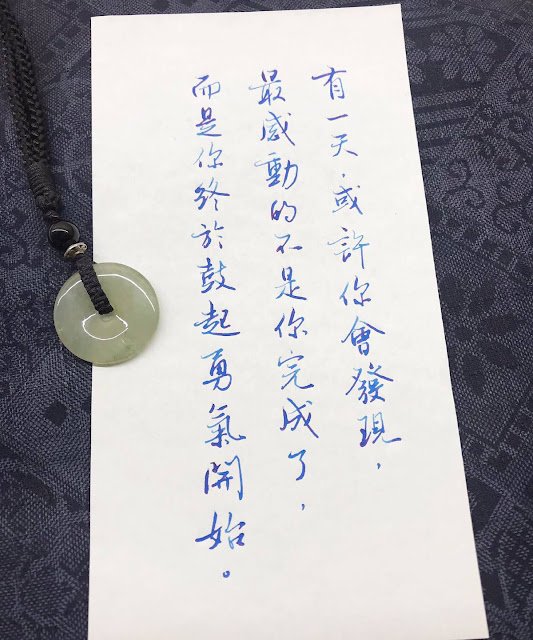 有一天,或許你會發現,
最感動的不是你完成了,
而是你終於鼓起勇氣開始。